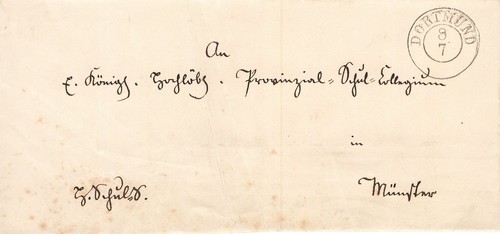 DORTMUND
8
7
An
E. Königl. Hochlöbl. Provinzial-Schul-Collegium
in
H. Schul-S.
Münster